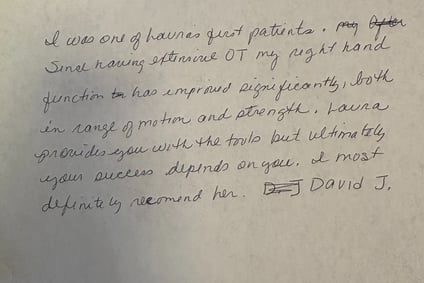 I was one of Laura's first patients. my After
Since having extensive OT my right hand
function to has improved significantly, both
in range of motion and strength. Laura
provides you with the tools but ultimately
your success depends on you. I most
definitely recomend her. D.J David J.